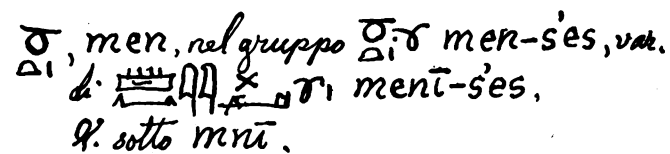 , men, nel gruppo men-śes, var.
di menī-śes.
V. sotto mnī.